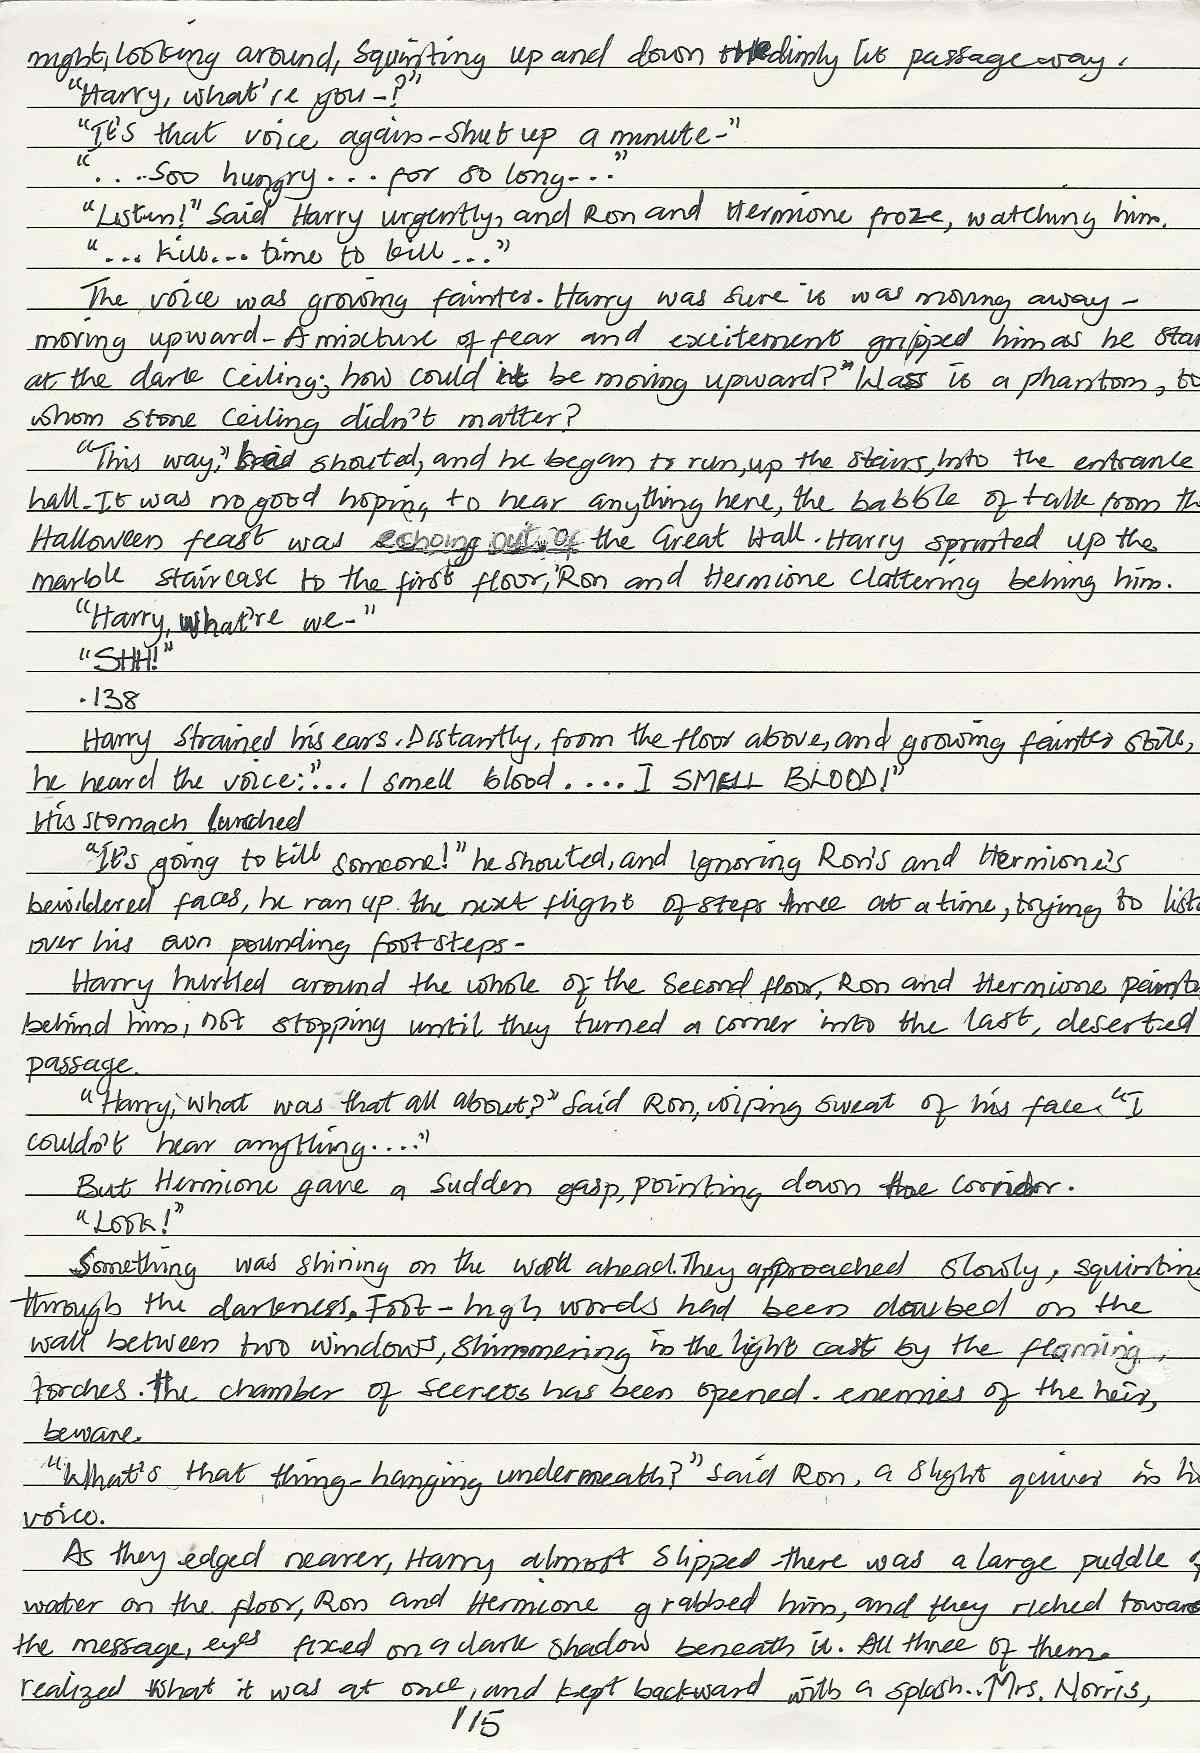 might, looking around, squinting up and down the dimly lit passageway.
"Harry, what're you-?"
"It's that voice again-shut up a minute-"
"....Soo hungry... for so long..."
"Listen!" Said Harry urgently, and Ron and Hermione froze, watching him.
"...kill... time to kill..."
The voice was growing fainter. Harry was sure it was moving away-
moving upward- A mixture of fear and excitement gripped him as he star
at the dark ceiling; how could it be moving upward?" Was it a phantom, to
whom stone ceiling didn't matter?
"This way," he shouted, and he began to run, up the stairs, into the entrance
hall. It was no good hoping to hear anything here, the babble of talk from th
Halloween feast was echoing out of the Great Hall. Harry sprinted up the
marble staircase to the first floor, Ron and Hermione clattering behing him.
"Harry, what're we-"
"SHH!"
.138
Harry strained his ears. Distantly, from the floor above, and growing fainter still,
he heard the voice:"... I smell blood.... I SMELL BLOOD!"
His stomach lurched
"It's going to kill someone!" he shouted, and ignoring Ron's and Hermione's
bewildered faces, he ran up the next flight of steps three at a time, trying to liste
over his own pounding footsteps-
Harry hurtled around the whole of the second floor, Ron and Hermione
behind him, not stopping until they turned a corner into the last, deserted
passage.
"Harry, what was that all about?" Said Ron, wiping sweat of his face. "I
couldn't hear anything...."
But Hermione gave a sudden gasp, pointing down the corridor.
"Look!"
Something was shining on the wall ahead. They approached slowly, squinting
through the darkness. Foot-high words had been daubed on the
wall between two windows, shimmering in the light cast by the flaming
torches. the chamber of secrets has been opened. enemies of the heir,
beware.
"What's that thing-hanging underneath?" Said Ron, a slight quiver in hi
voice.
As they edged nearer, Harry almost slipped-there was a large puddle o
water on the floor, Ron and Hermione grabbed him, and they riched toward
the message, eyes fixed on a dark shadow beneath it. All three of them
realized what it was at once, and kept backward with a splash.. Mrs. Norris,
115